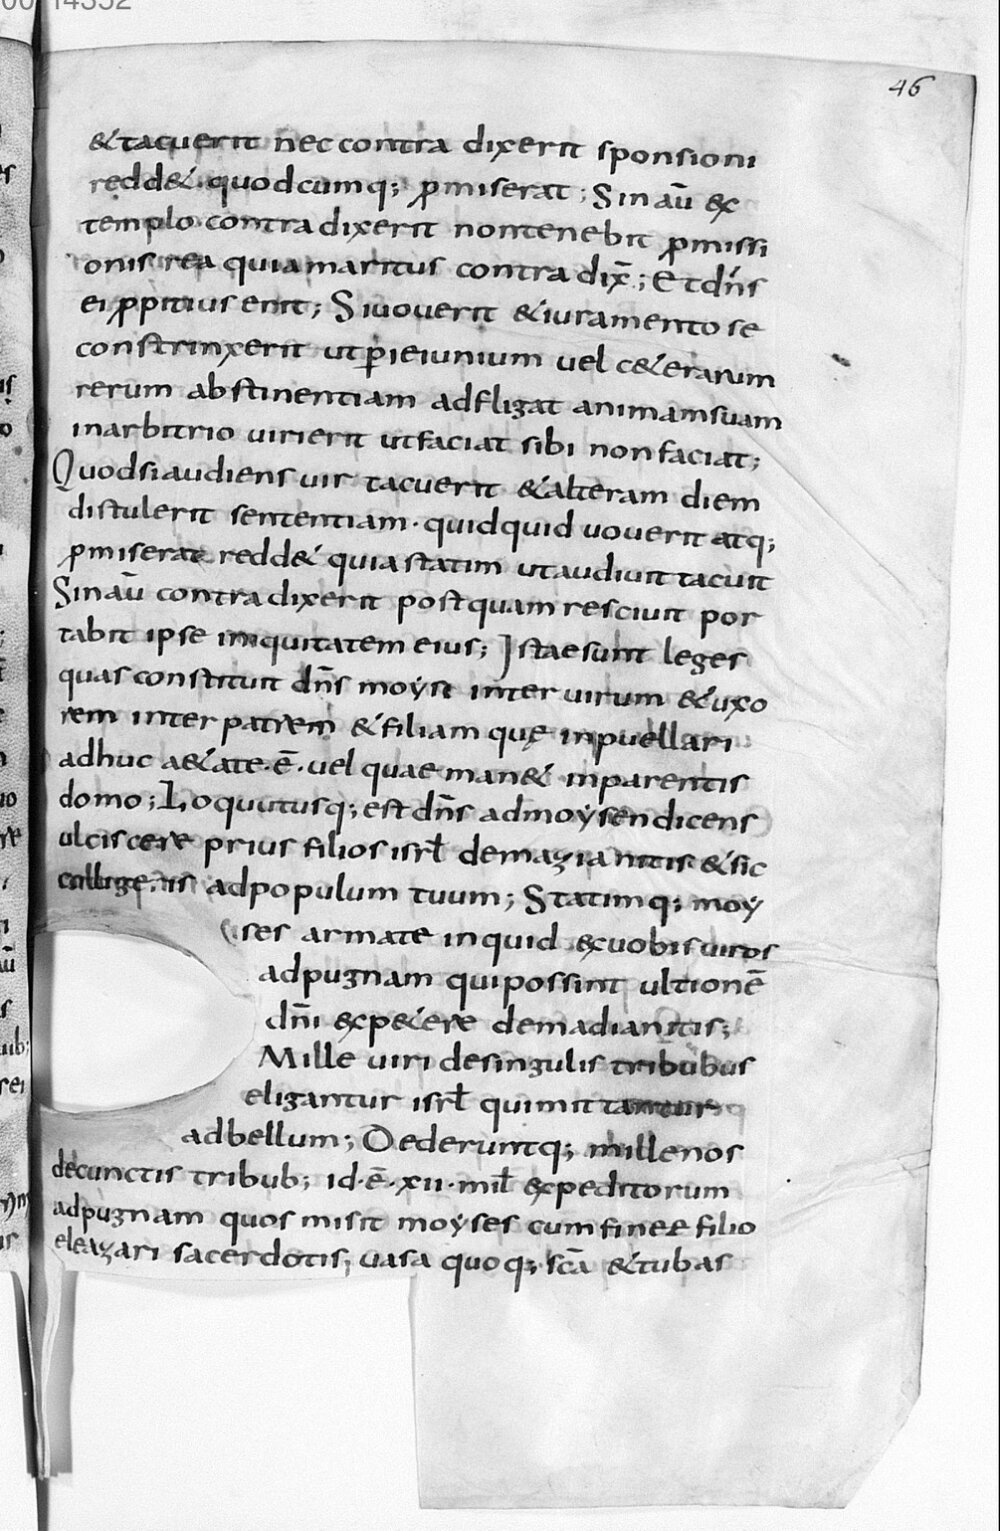 46
&tacuerit nec contra dixerit sponsioni
redd&·quodcumq; ꝓmiserat; Sin aū ex
templo contra dixerit non tenebit ꝓmissi
onis rea quia maritus contra dix̄; Et dn̄s
ei ꝓpitius erit; Si uouerit &iuramento se
constrinxerit ut ꝑieiunium uel c&erarum
rerum abstinentiam adfligat animam suam
in arbitrio uiri erit ut faciat sibi non faciat;
Quodsi audiens uir tacuerit &alteram diem
distulerit sententiam· quidquid uouerit atq;
ꝓmiserat redd& quia statim ut audiuit tacuit
Sin aū contra dixerit postquam resciuit por
tabit ipse iniquitatem eius; Istae sunt leges
quas constituit dn̄s moysi inter uirum &uxo
rem inter patrem &filiam quę in puellari
adhuc a&ate·ē·uel quae man& in parentis
domo; Loquutusq; est dn̄s ad moysen dicens
ulciscere prius filios isrł de mazianitis &sic
collige,is ad populum tuum; Statimq; moy
ses armate inquid ex uobis uiros
ad pugnam qui possint ultionē
dn̄i exp&ere de madianitis;
Mille uiri de singulis tribubus
eligantur isrł qui mittantur
ad bellum; Dederuntq; millenos
de cunctis tribub; id·ē·xii·mił expeditorum
ad pugnam quos misit moyses cum finees filio
eleazari sacerdotis, uasa quoq; sc̄a &tubas